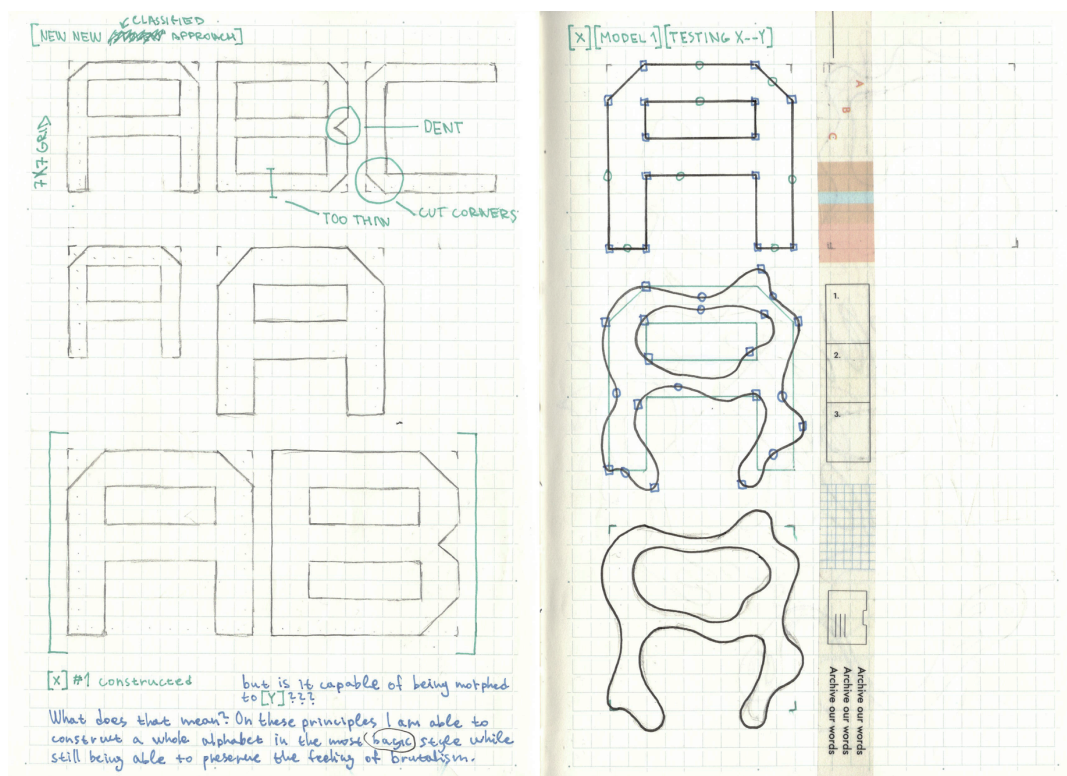 CLASSIFIED
[NEW NEW APPROACH]
7X7 GRID
DENT
TOO THIN
CUT CORNERS
[X] #1 constructed
but is it capable of being morphed
to [Y]???
What does that mean? On these principles I am able to
construct a whole alphabet in the most basic style while
still being able to preserve the feeling of brutalism.
[X][MODEL 1][TESTING X--Y]
A
B
C
F
1.
2.
3.
Archive our words
Archive our words
Archive our words